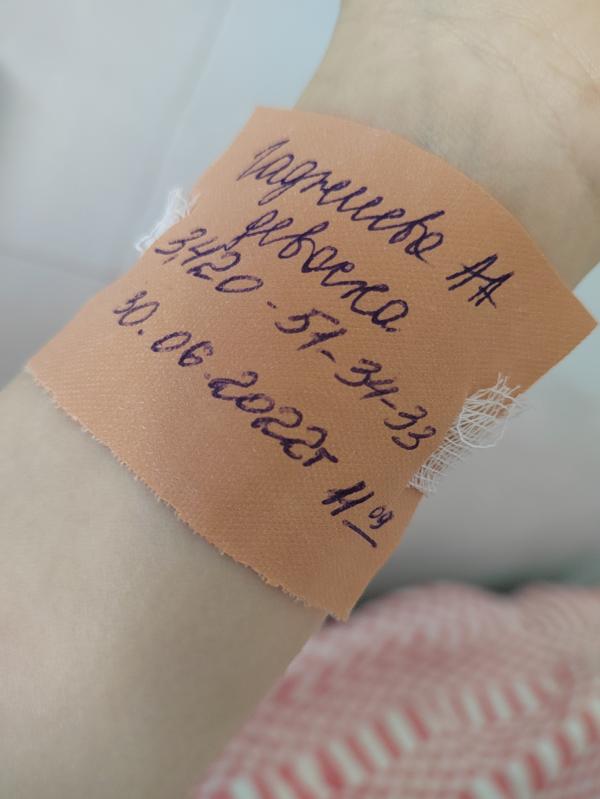 Гаджиева АА
девочка
3,420 - 51 - 34 - 33
30.06.2022г 11⁰⁹